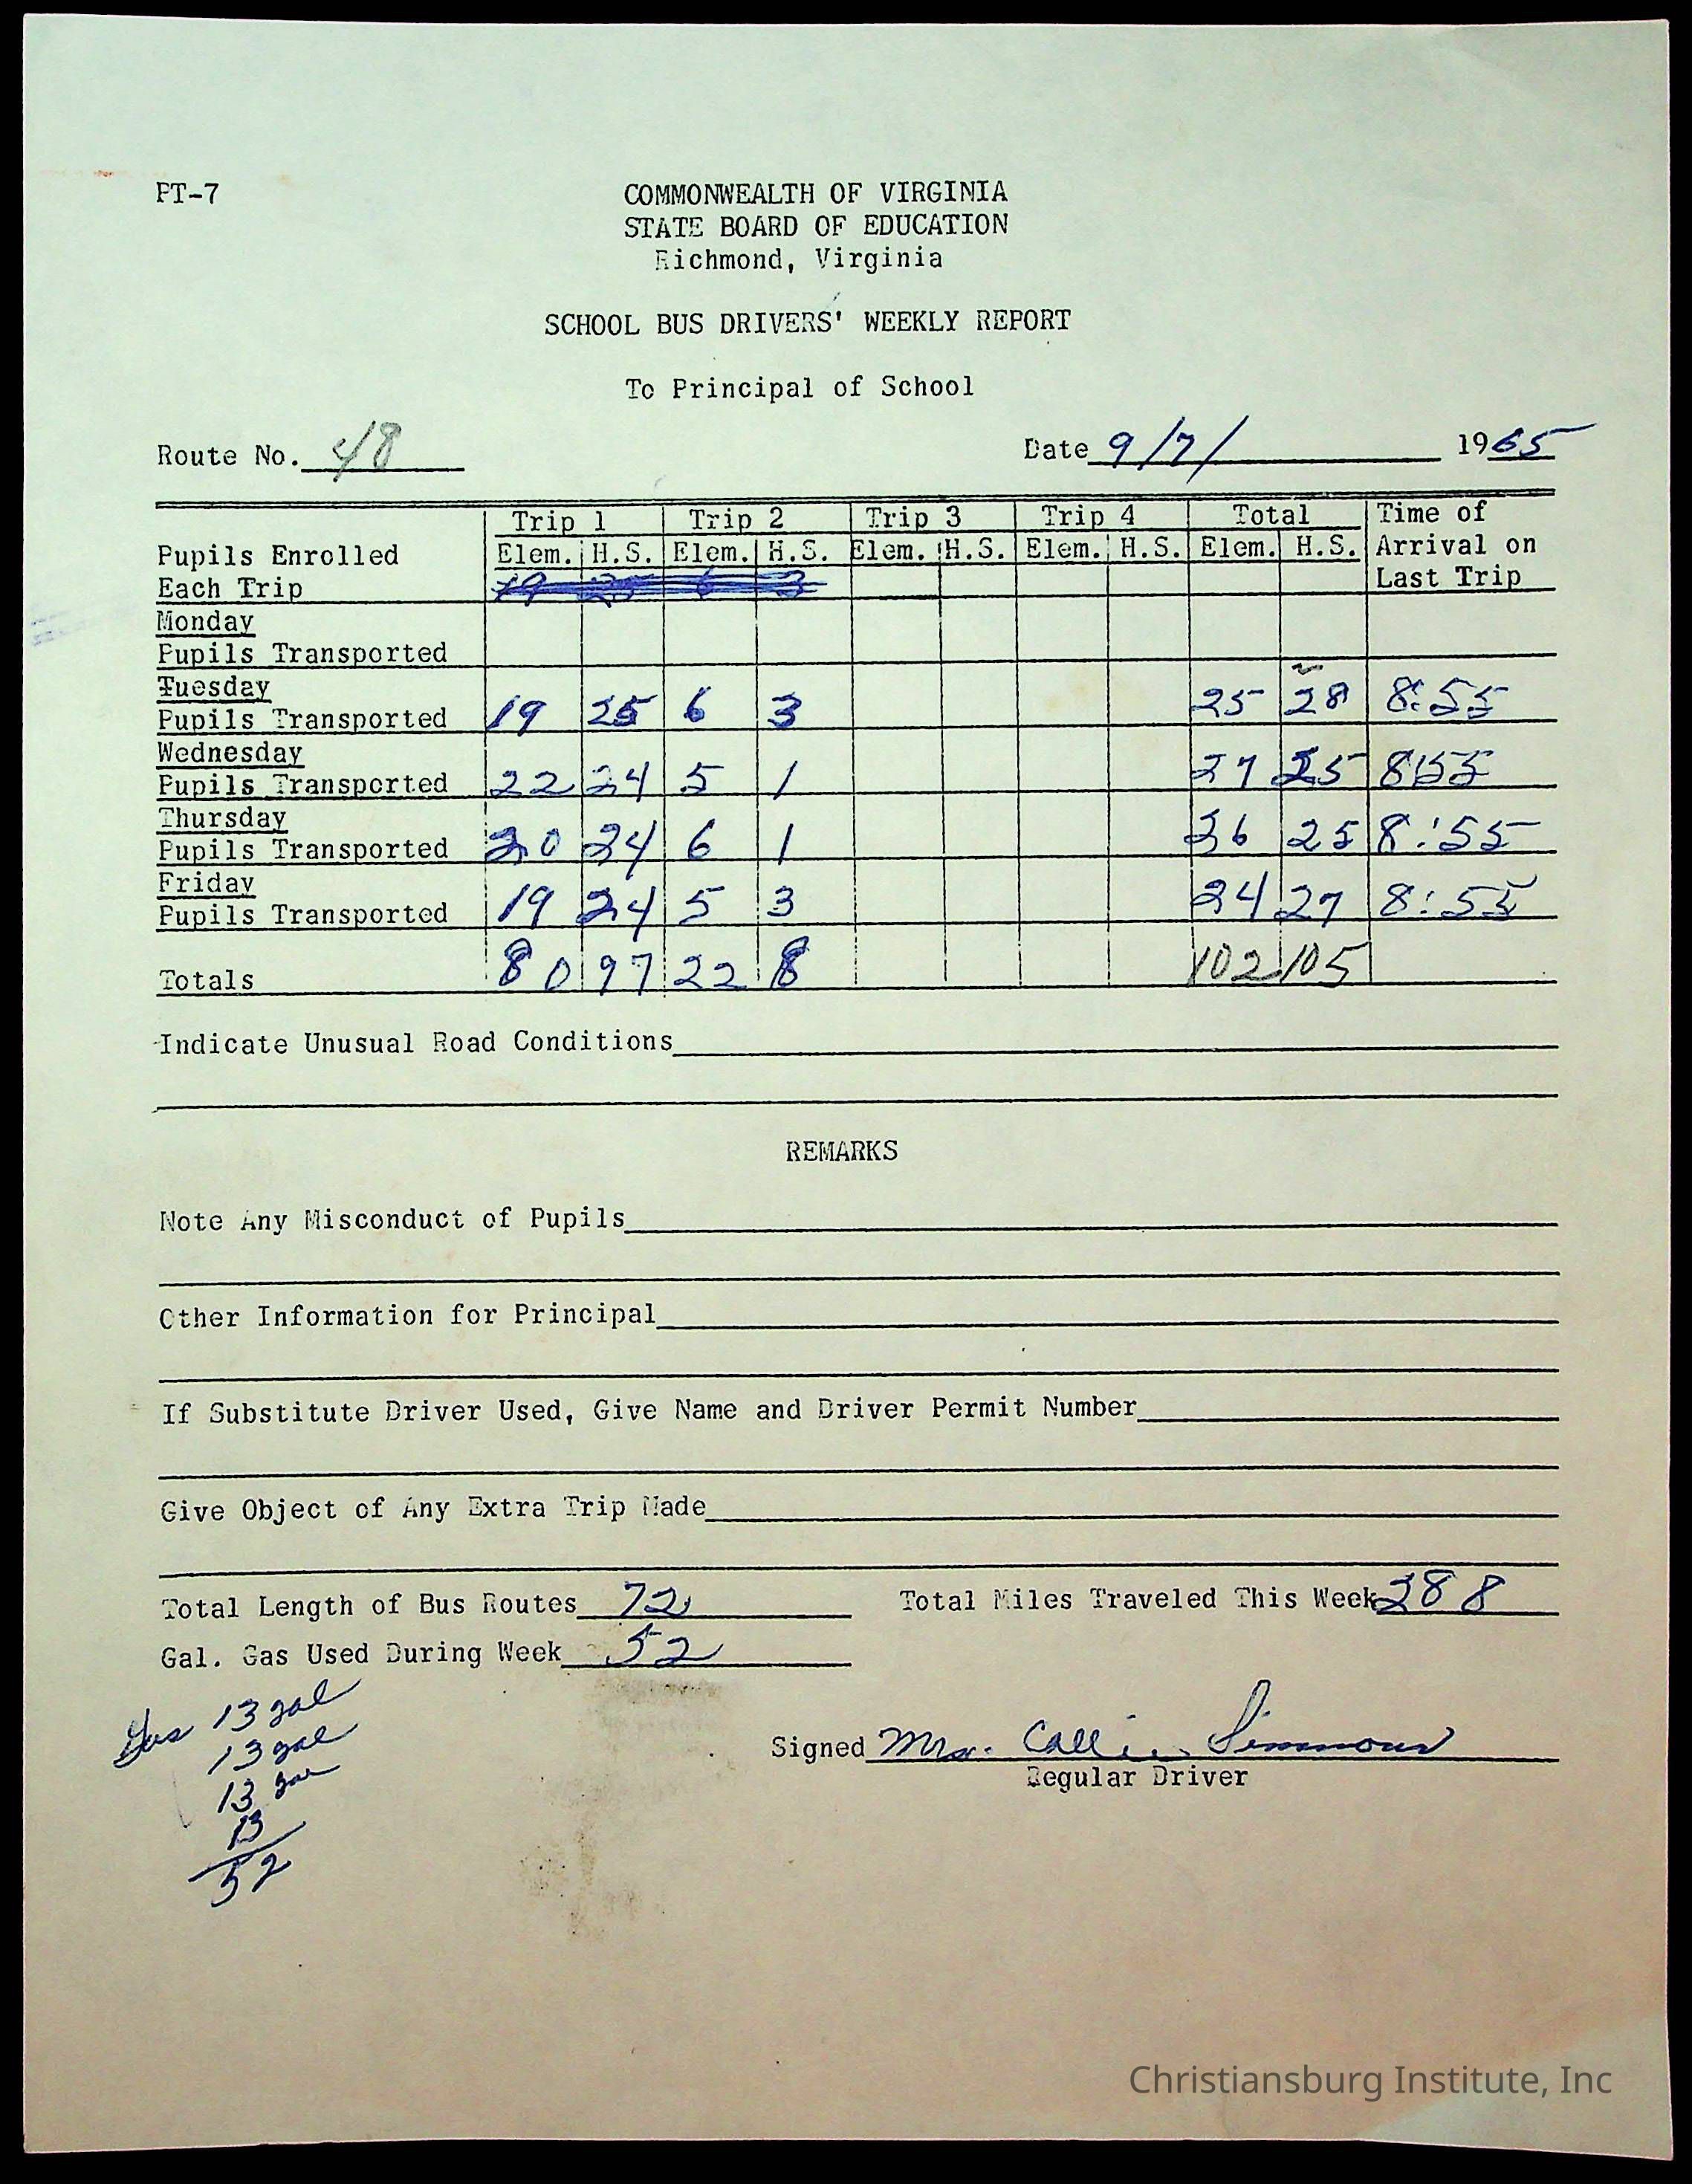 PT-7
COMMONWEALTH OF VIRGINIA
STATE BOARD OF EDUCATION
Richmond, Virginia
SCHOOL BUS DRIVERS' WEEKLY REPORT
To Principal of School
Route No. 48 Date 9/7/ 1965
Trip 1 Trip 2 Trip 3 Trip 4 Total Time of
Pupils Enrolled Elem. H.S. Elem. H.S. Elem. H.S. Elem. H.S. Elem. H.S. Arrival on
Each Trip 19 25 6 3 Last Trip
Monday
Pupils Transported
Tuesday
Pupils Transported 19 25 6 3 25 28 8:55
Wednesday
Pupils Transported 22 24 5 1 27 25 8:55
Thursday
Pupils Transported 20 24 6 1 26 25 8:55
Friday
Pupils Transported 19 24 5 3 24 27 8:55
Totals 80 97 22 8 102 105
Indicate Unusual Road Conditions
REMARKS
Note Any Misconduct of Pupils
Other Information for Principal
If Substitute Driver Used, Give Name and Driver Permit Number
Give Object of Any Extra Trip Made
Total Length of Bus Routes 72 Total Miles Traveled This Week 288
Gal. Gas Used During Week 52
Gas 13 gal
13 gal
13 gal
13
52
Signed Mrs. Callie Simmons
Regular Driver
Christiansburg Institute, Inc